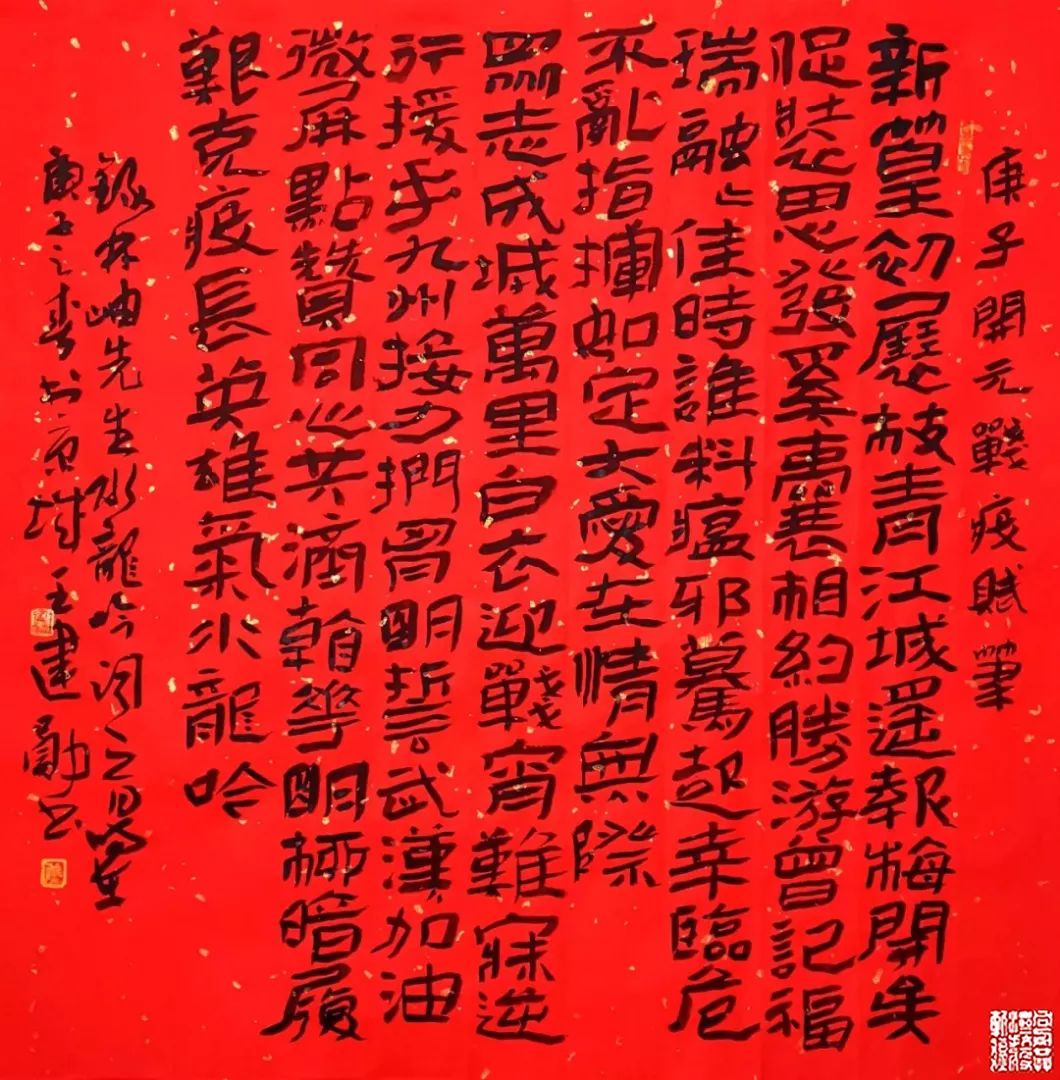 庚子開元戰疫賦筆
新篁初展枝青江城遥報梅開矣
促裝思發奚囊相約勝游曾記福
瑞融〻佳時誰料瘟邪驀起幸臨危
不亂指揮如定大愛在情無際
眾志成城萬里白衣迎戰宵難寐逆
行援手九州接力捫胷明誓武漢加油
微屏點贊同心共濟翰華明極暗履
艱克疫長英雄氣水龍吟
錄林岫先生水龍吟詞之
庚子之春於京城王建勳書